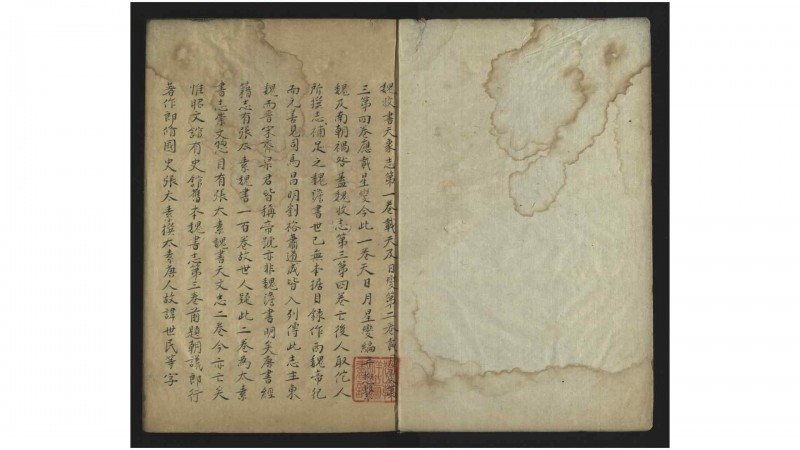 魏收書天象志第一卷載天及日變第二卷載月變第
三第四卷應載星變今此二卷天日月星變編年總繫
魏及南朝禍咎蓋魏收志第三第四卷亡後人取他人
所撰志補足之魏澹書世已無本據目錄作西魏帝紀
而元善見司馬昌明劉裕蕭道成皆入列傳此志主東
魏而晉宋齊梁君皆稱帝號亦非魏澹書明矣唐書經
籍志有張太素魏書一百卷故世人疑此二卷為太素
書志崇文總目有張太素魏書天文志二卷今亦亡矣
惟昭文館有史館舊本魏書志第三卷前題朝議郎行
著作郎脩國史張太素撰太素唐人故諱世民等字